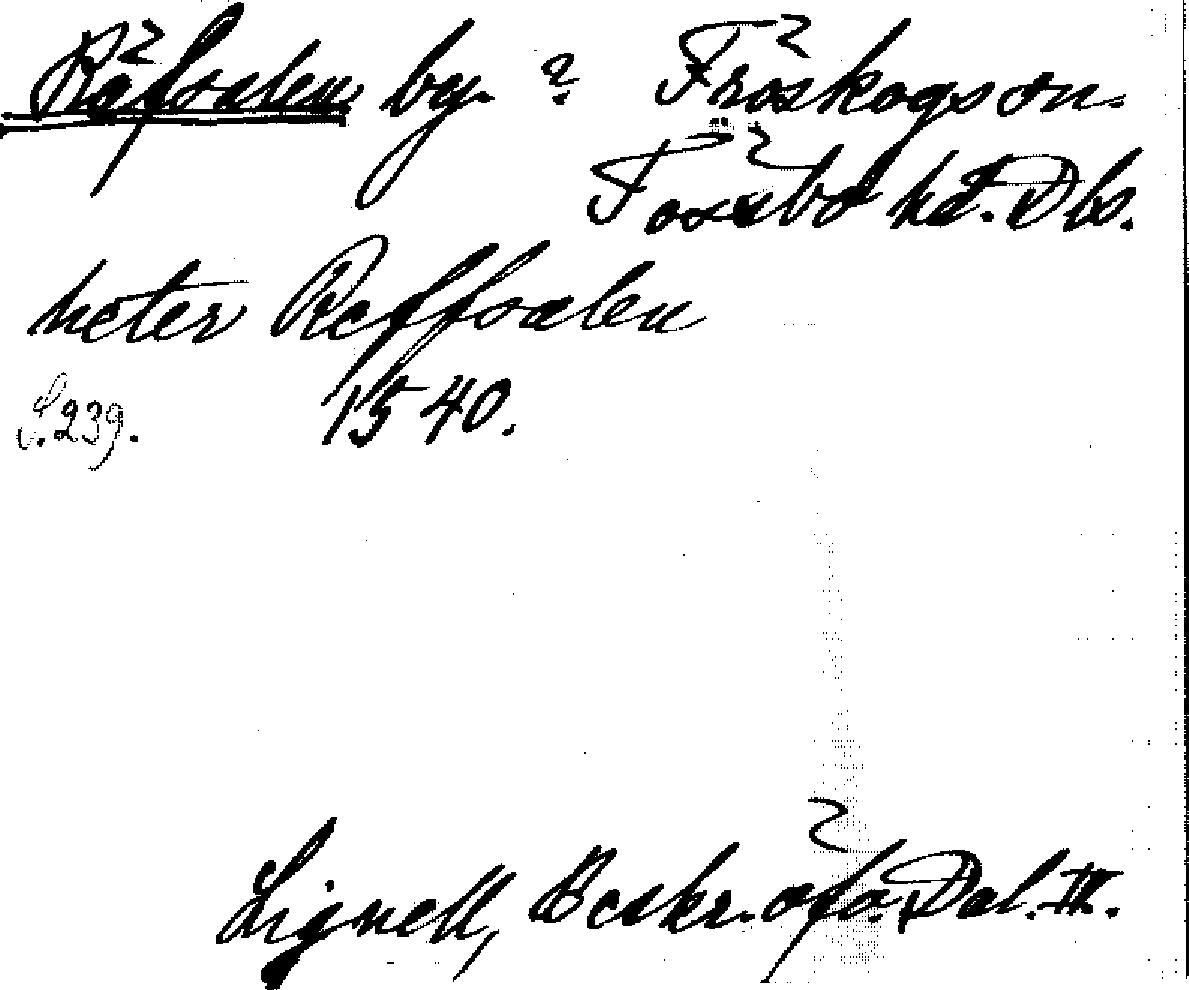 Räfsalen by. ? Fröskogs sn.
Tössbo hd. Dls.
heter Reffsalen
S. 239. 1540.
Lignell, Beskr. öfv. Dal. II.